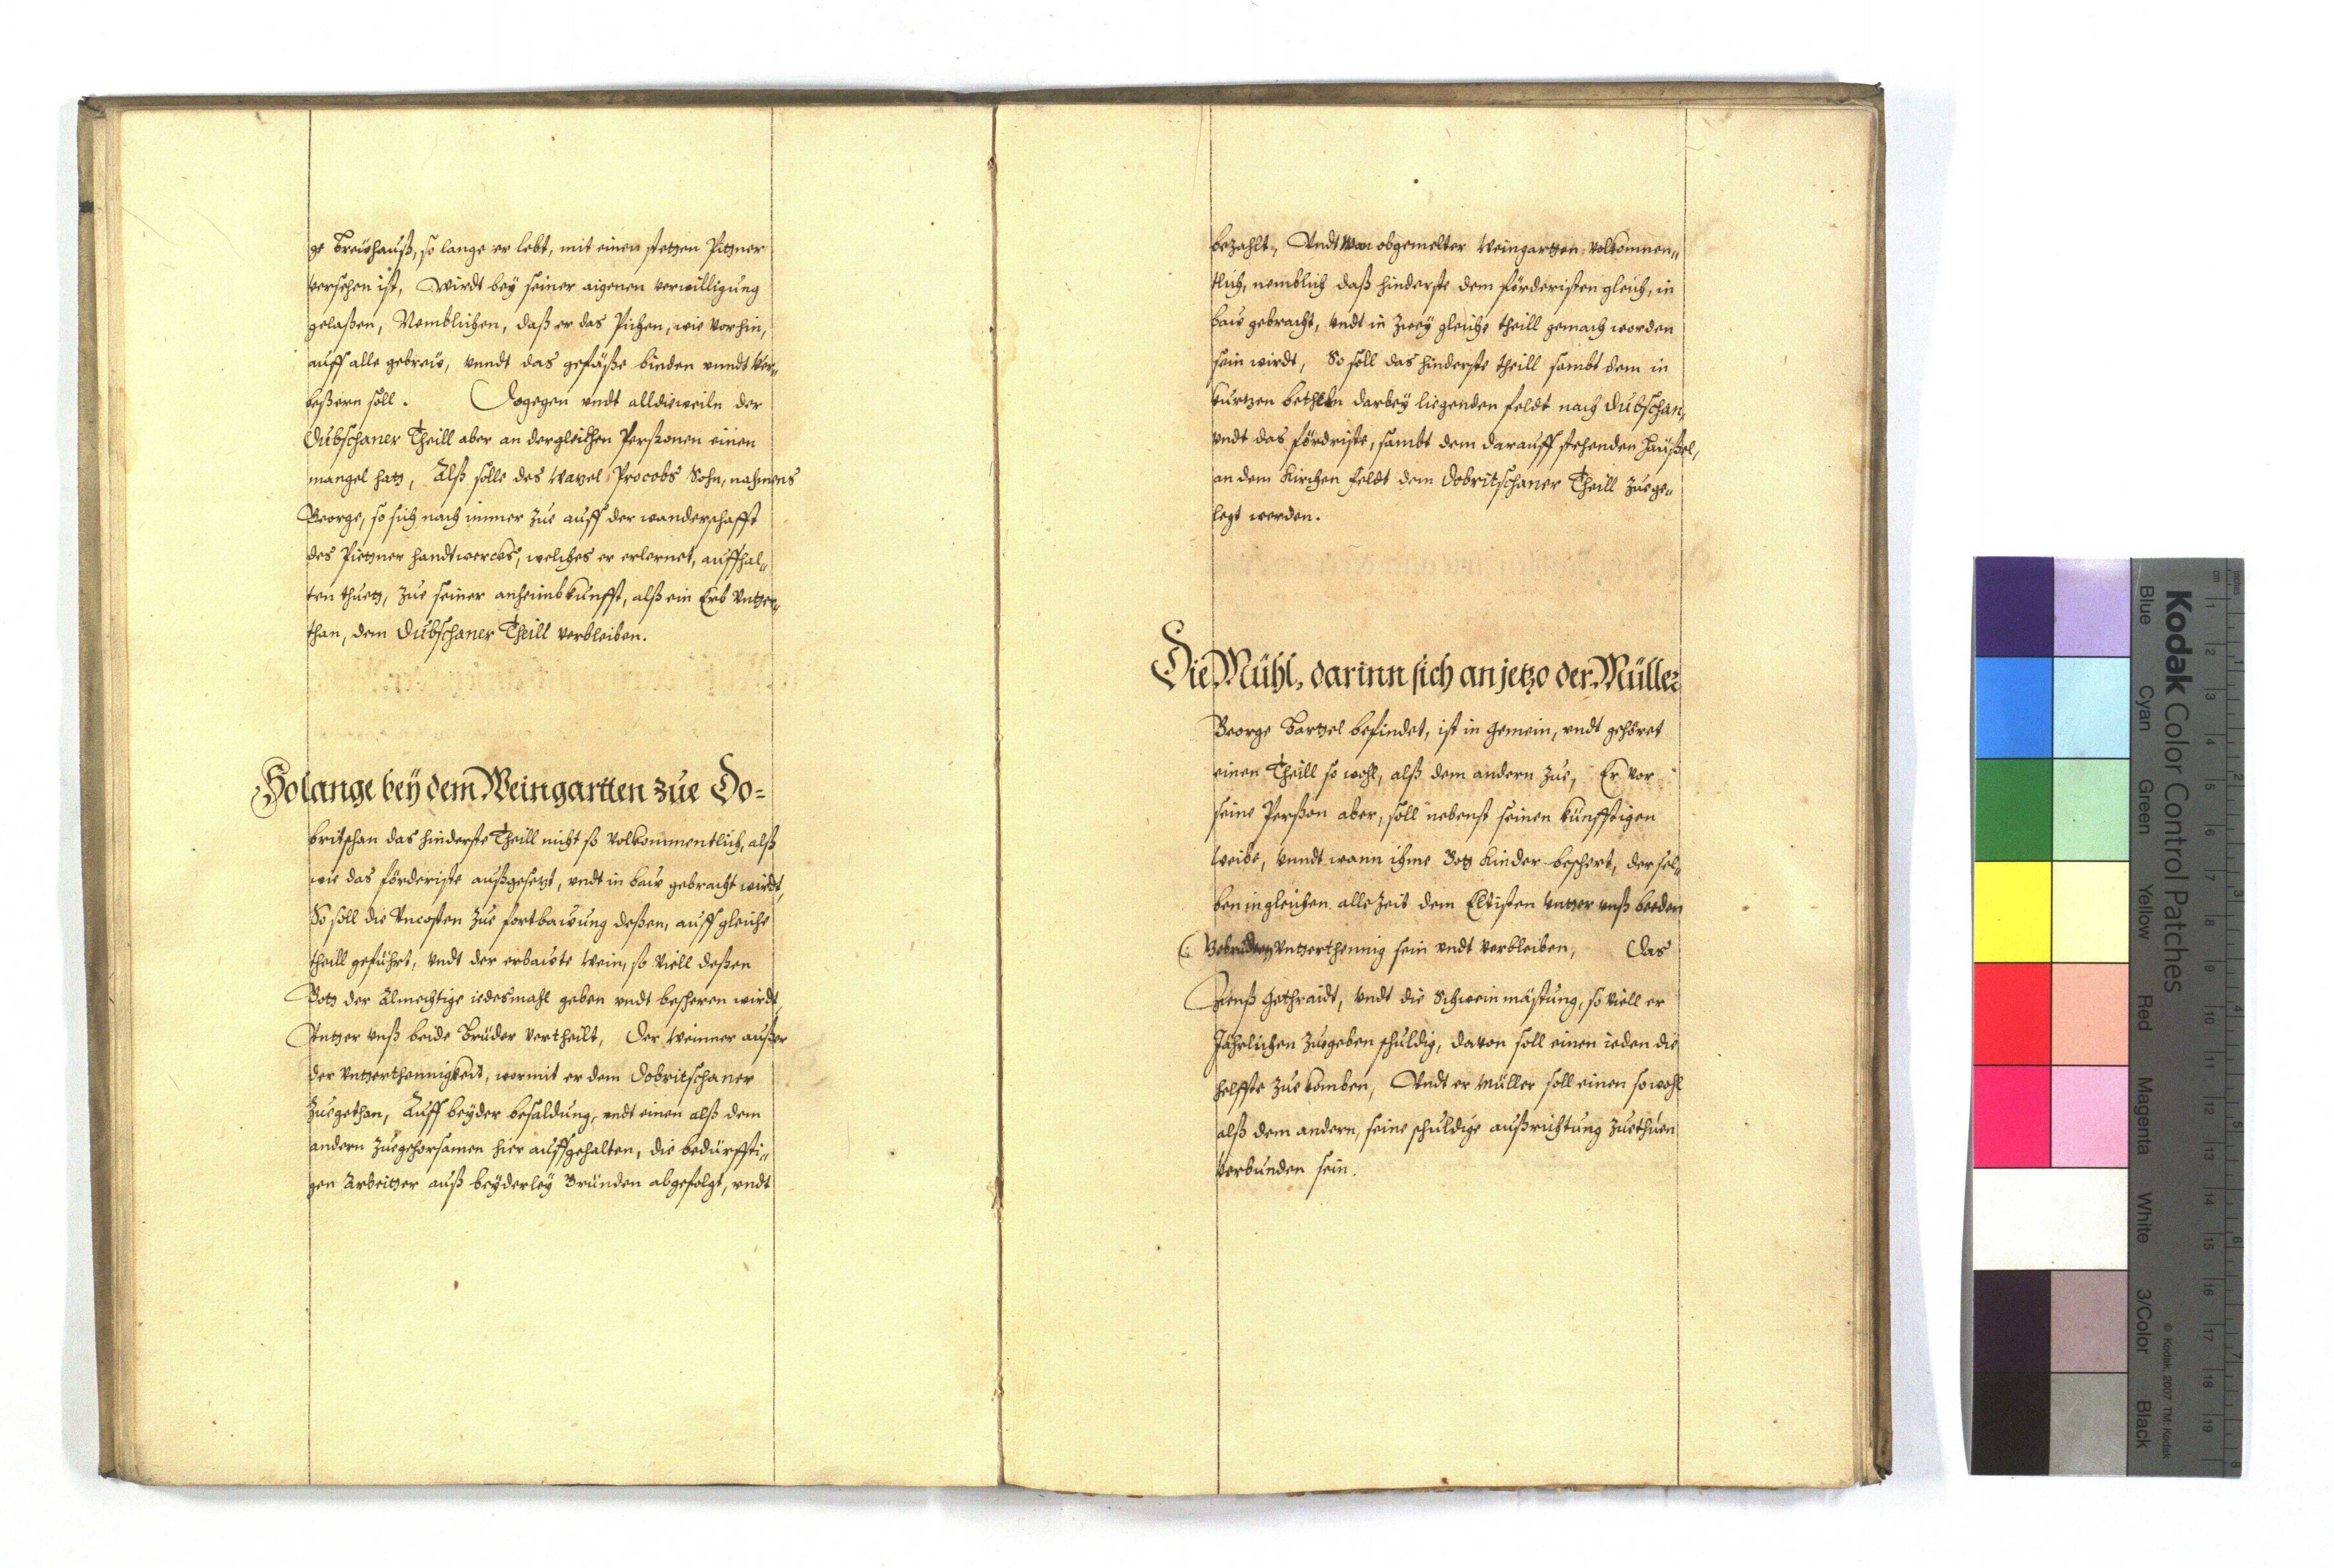 ge Breüshauß, so lange er lebt, mit einen stetten Pittner
versehen ist, Wirdt bey seiner aigenen verwilligung
gelaßen, Nemblichen, daß er das Pichen, wie vorhin,
auff alle gebreüs, vnndt das gefäße binden vnndt ver„
beßern soll. Dogegen vndt alldieweiln der
Dubschaner Theill aber an dergleichen Persohnen einen
mangel hatt, Alß solle des Wavel Procobs Sohn, nahmens
George, so sich nach immer zue auff der wanderschafft
des Piettner handtwercks, welches er erlernet, auffhal„
ten thuett, zue seiner anheimbkunfft, alß ein Erb Vntter„
than, dem Dubschaner Theill verbleiben.
Solange bey dem Weingartten zue Do-
britschan das hinderste Theill nicht so volkommentlich, alß
wie das förderiste außgesetzt, vndt in baw gebracht wirdt,
So soll die Vncosten zue fortbawung deßen, auff gleiche
theill geführt, vndt der erbawte Wein, so viell deßen
Gott der Almechtige iedesmahl geben vndt bescheren wirdt,
Vntter vnß beide Brüder vertheilt, Der Weinner außer
der Vntterthennigkeit, wormit er dem Dobritschaner
zuegethan, Auff beyder besoldung, vndt einen alß dem
andern zuegehorsamen hier auffgehalten, die bedürffti„
gen Arbeitter auß beyderley Gründen abgefolgt, vndt
bezahlt, Vndt Wan obgemelter Weingartten volkommen„
tlich, nemblich daß hinderste dem förderisten gleich, in
baw gebracht, vndt in zwey gleiche theill gemach worden
sein wirdt, So soll das hinderste theill sambt dem in
kurtzen darbey liegenden feldt nach Dubschan,
vndt das fördriste, sambt dem darauff stehenden Häußel,
an dem Kirchen feldt dem Dobritschaner Theill zuege„
legt werden.
Die Mühl, darinn sich anjetzo der Müller
George Bartzel befindet, ist in gemein, vndt gehöret
einen Theill so wohl, alß dem andern zue, Er vor
seine Persohn aber, soll nebenst seinen künfftigen
Weibe, vnndt wann ihme Gott Kinder beschert, dersel„
ben ingleichen alle Zeit dem Eltisten Vntter vnß beeden
(: Gebrüdern Vntterthennig sein vndt verbleiben, Das
Zienß gethraidt, vndt die Schweinmästung, so viell er
Jährlichen zuegeben schuldig, davon soll einen ieden die
helffte zue komben, Vndt er Müller soll einen sowohl
alß dem andern, seine schuldige außrichtung zuethuen
verbunden sein.
Kodak Color Control Patches
Blue Cyan Green Yellow Red Magenta White 3/Color Black
© Kodak, 2007 TM: Kodak